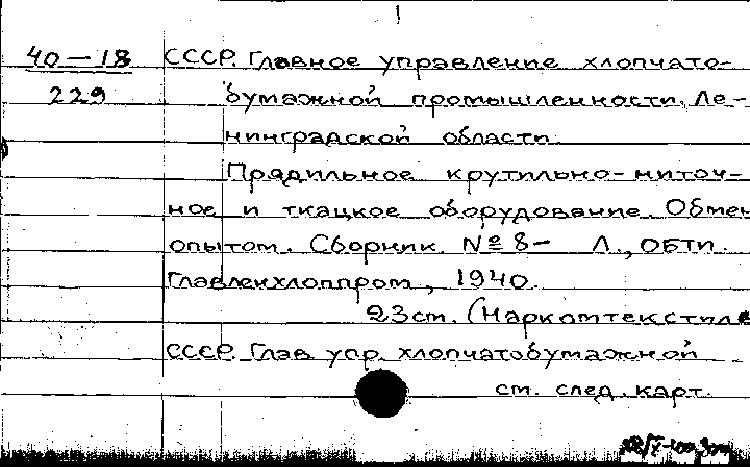 40-18 СССР. Главное управление хлопчато-
229 бумажной промышленности Ле-
нинградской области.
Прядильное крутильно-ниточ-
ное и ткацкое оборудование. Обмен
опытом. Сборник № 8- Л., ОБТИ
Главленхлоппром, 1940.
23 ст. (Наркомтекстиль
СССР. Глав. упр. хлопчатобумажной
см. след. карт.